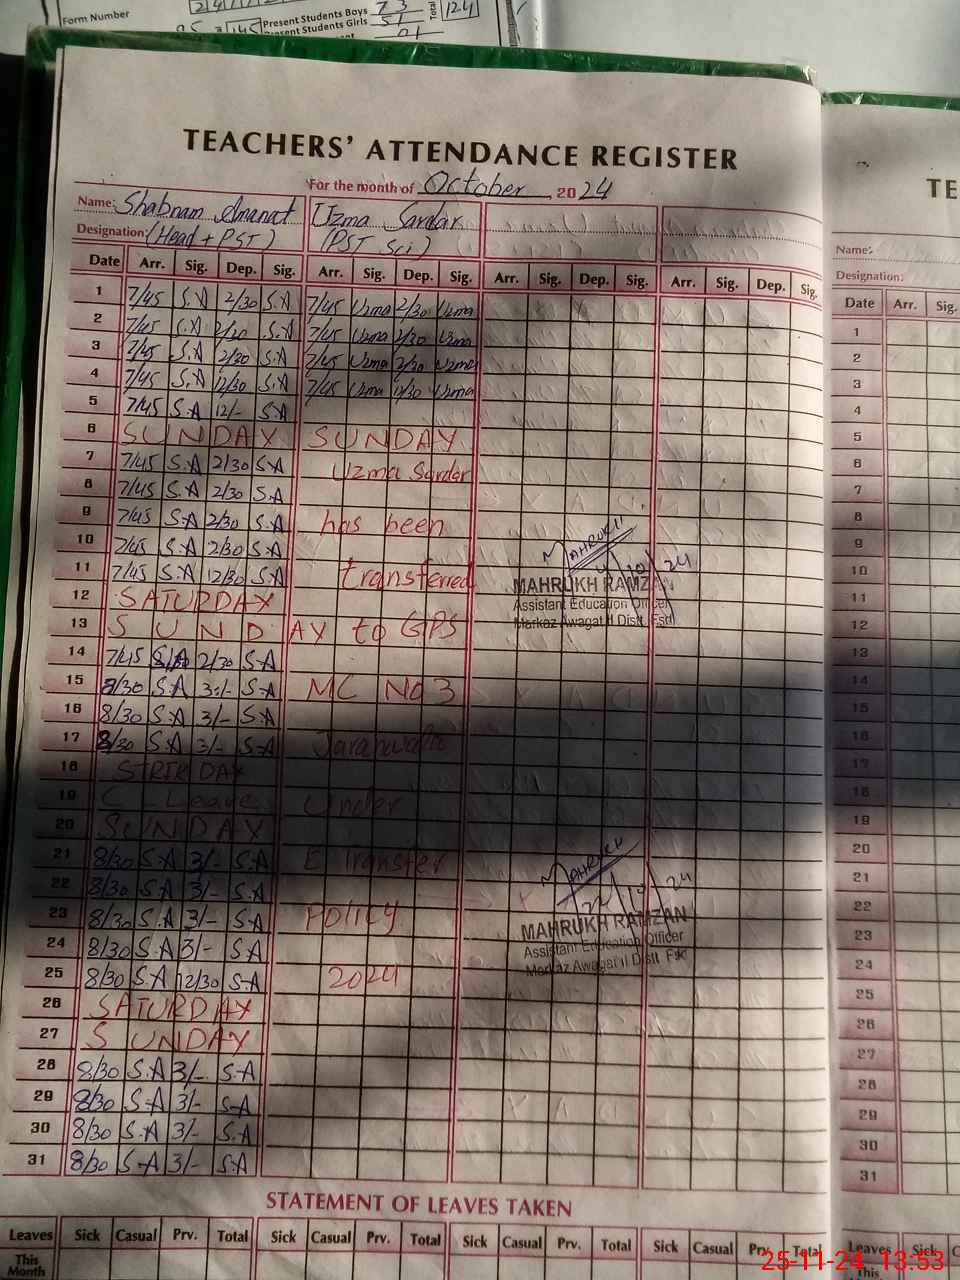 Form Number
Present Students Boys 73
Present Students Girls 51
Total 124
TEACHERS' ATTENDANCE REGISTER
For the month of October, 2024
Name: Shabnam Amanat Uzma Sardar
Designation: (Head + PST) (PST Sci)
Date Arr. Sig. Dep. Sig. Arr. Sig. Dep. Sig. Arr. Sig. Dep. Sig. Arr. Sig. Dep. Sig.
1 7/45 S.A 2/30 S.A 7/45 Uzma 2/30 Uzma
2 7/45 S.A 2/30 S.A 7/45 Uzma 2/30 Uzma
3 7/45 S.A 2/30 S.A 7/45 Uzma 2/30 Uzma
4 7/45 S.A 12/30 S.A 7/45 Uzma 12/30 Uzma
5 7/45 S.A 12/- S.A
6 SUNDAY SUNDAY
7 7/45 S.A 2/30 S.A Uzma Sardar
8 7/45 S.A 2/30 S.A
9 7/45 S.A 2/30 S.A has been
10 7/45 S.A 2/30 S.A
11 7/45 S.A 12/30 S.A transferred
12 SATURDAY
13 SUNDAY to GPS
14 7/45 S.A 2/30 S.A
15 8/30 S.A 3:/- S.A MC No 3
16 8/30 S.A 3/- S.A
17 8/30 S.A 3/- S.A Jaranwala
18 STRIK DAY
19 C_Leave Under
20 SUNDAY
21 8/30 S.A 3/- S.A E Transfer
22 8/30 S.A 3/- S.A
23 8/30 S.A 3/- S.A Policy
24 8/30 S.A 3/- S.A
25 8/30 S.A 12/30 S.A 2024
26 SATURDAY
27 SUNDAY
28 8/30 S.A 3/- S.A
29 8/30 S.A 3/- S.A
30 8/30 S.A 3/- S.A
31 8/30 S.A 3/- S.A
MAHRUKH
4/10/24
MAHRUKH RAMZAN
Assistant Education Officer
Markaz Awagat II Distt. Fsd
MAHRUKH
24/10/24
MAHRUKH RAMZAN
Assistant Education Officer
Markaz Awagat II Distt Fsd
STATEMENT OF LEAVES TAKEN
Leaves Sick Casual Prv. Total Sick Casual Prv. Total Sick Casual Prv. Total Sick Casual Prv. Total
This
Month
TE
Name:
Designation:
Date Arr. Sig.
1
2
3
4
5
6
7
8
9
10
11
12
13
14
15
16
17
18
19
20
21
22
23
24
25
26
27
28
29
30
31
Leaves Sick C
This
25-11-24 13:53